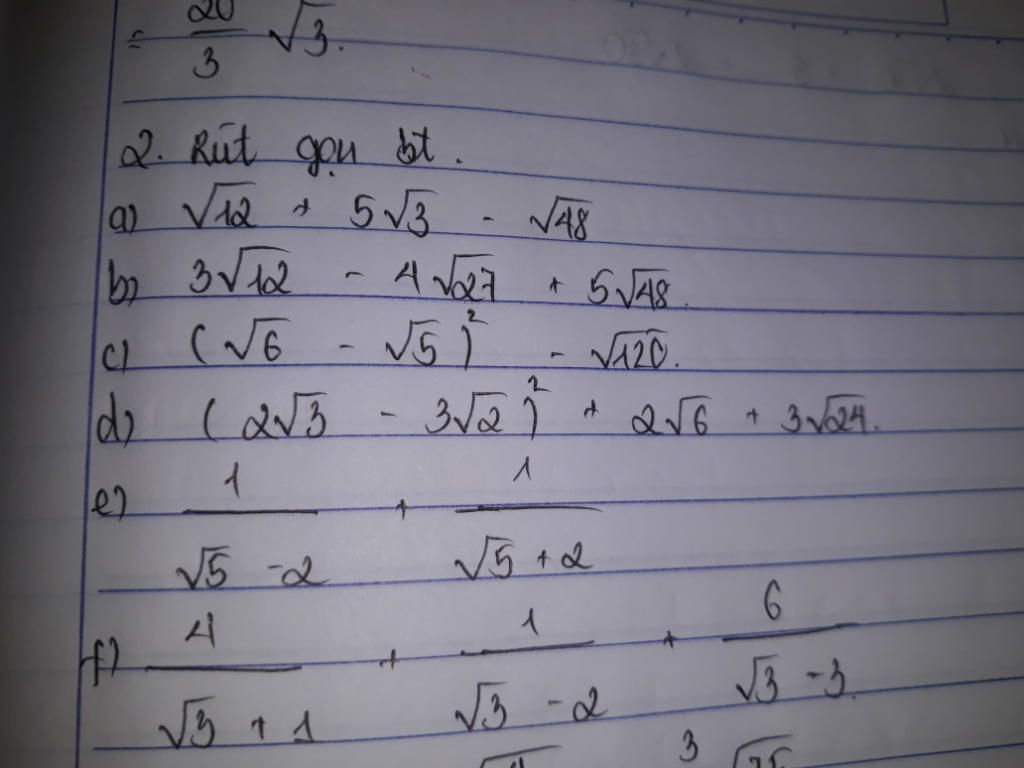 = 20/3 √3.
2. Rút gọn bt.
a) √12 + 5√3 - √48
b) 3√12 - 4√27 + 5√48.
c) (√6 - √5)² - √120.
d) (2√3 - 3√2)² + 2√6 + 3√24.
e) 1/(√5 - 2) + 1/(√5 + 2)
f) 4/(√3 + 1) + 1/(√3 - 2) + 6/(√3 - 3).
3